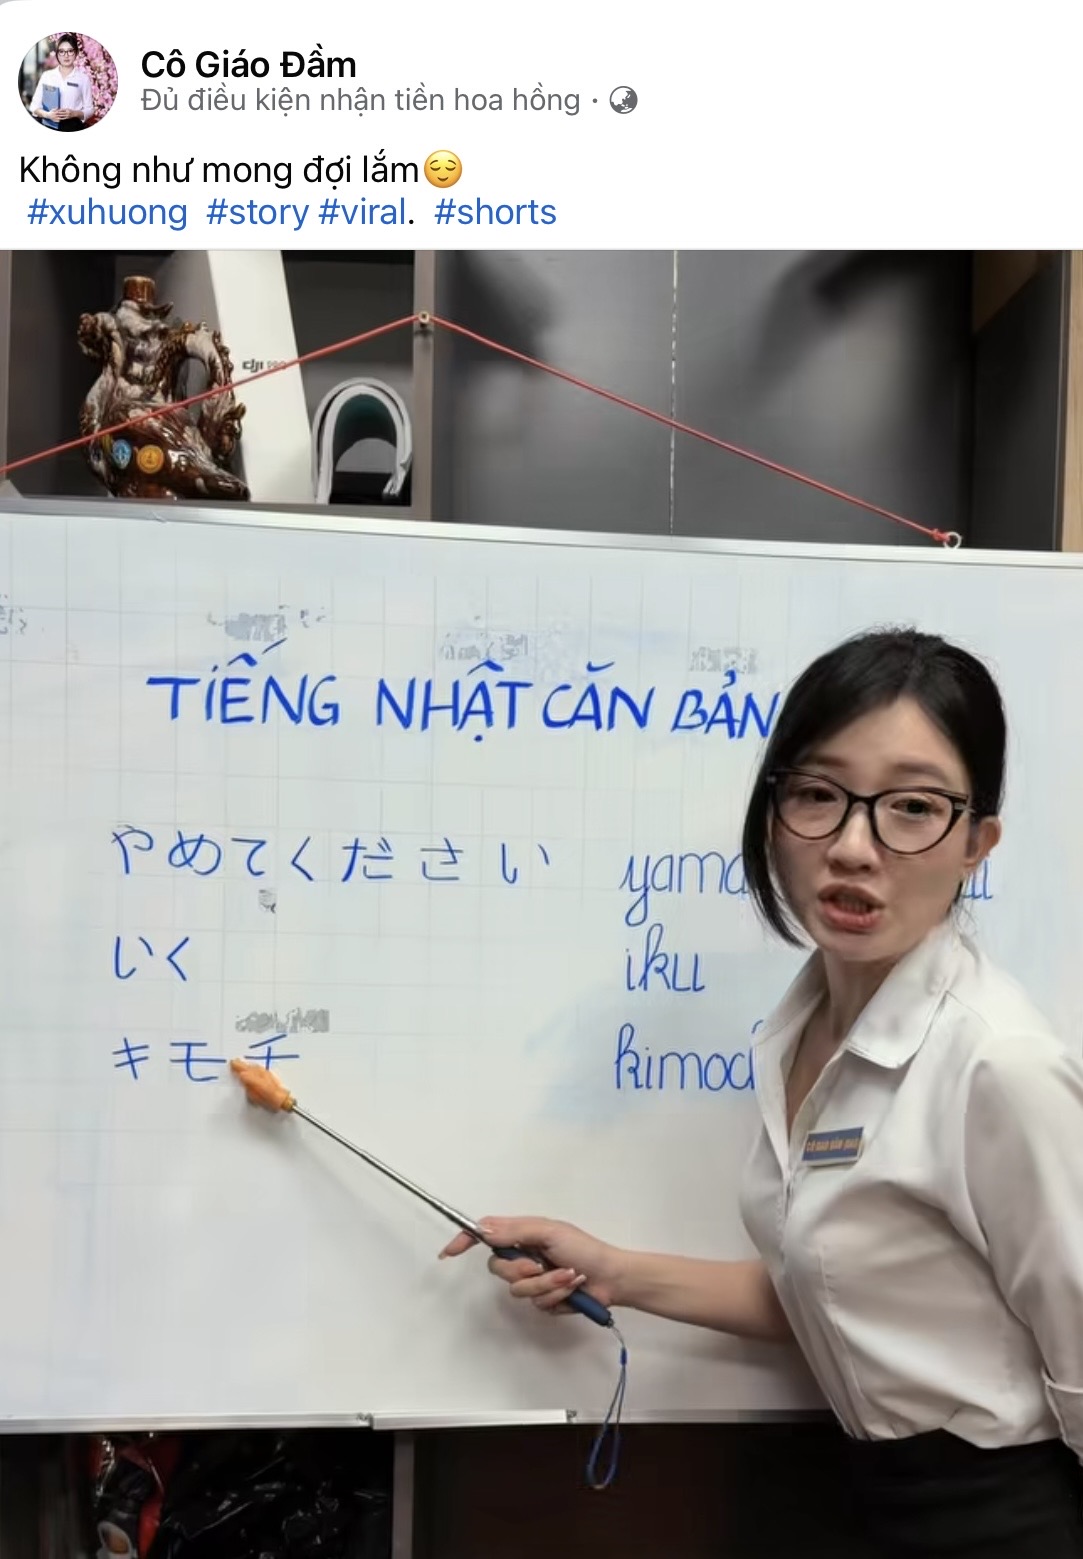 Cô Giáo Đầm
Đủ điều kiện nhận tiền hoa hồng ·
Không như mong đợi lắm😌
#xuhuong #story #viral. #shorts
dji
TIẾNG NHẬT CĂN BẢN
やめてください
いく iku
キモチ